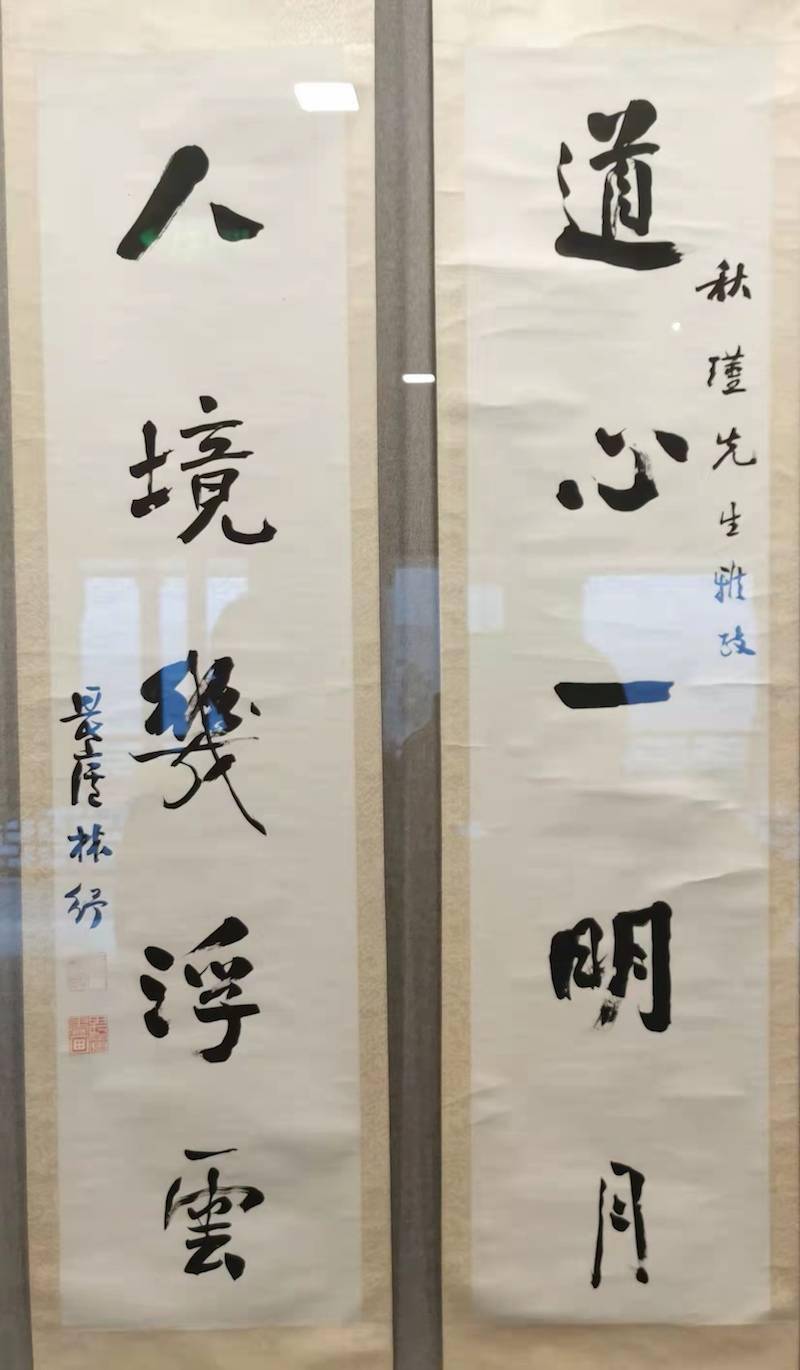 道心一明月
秋瑾先生雅政
人境幾浮雲
畏廬林紓